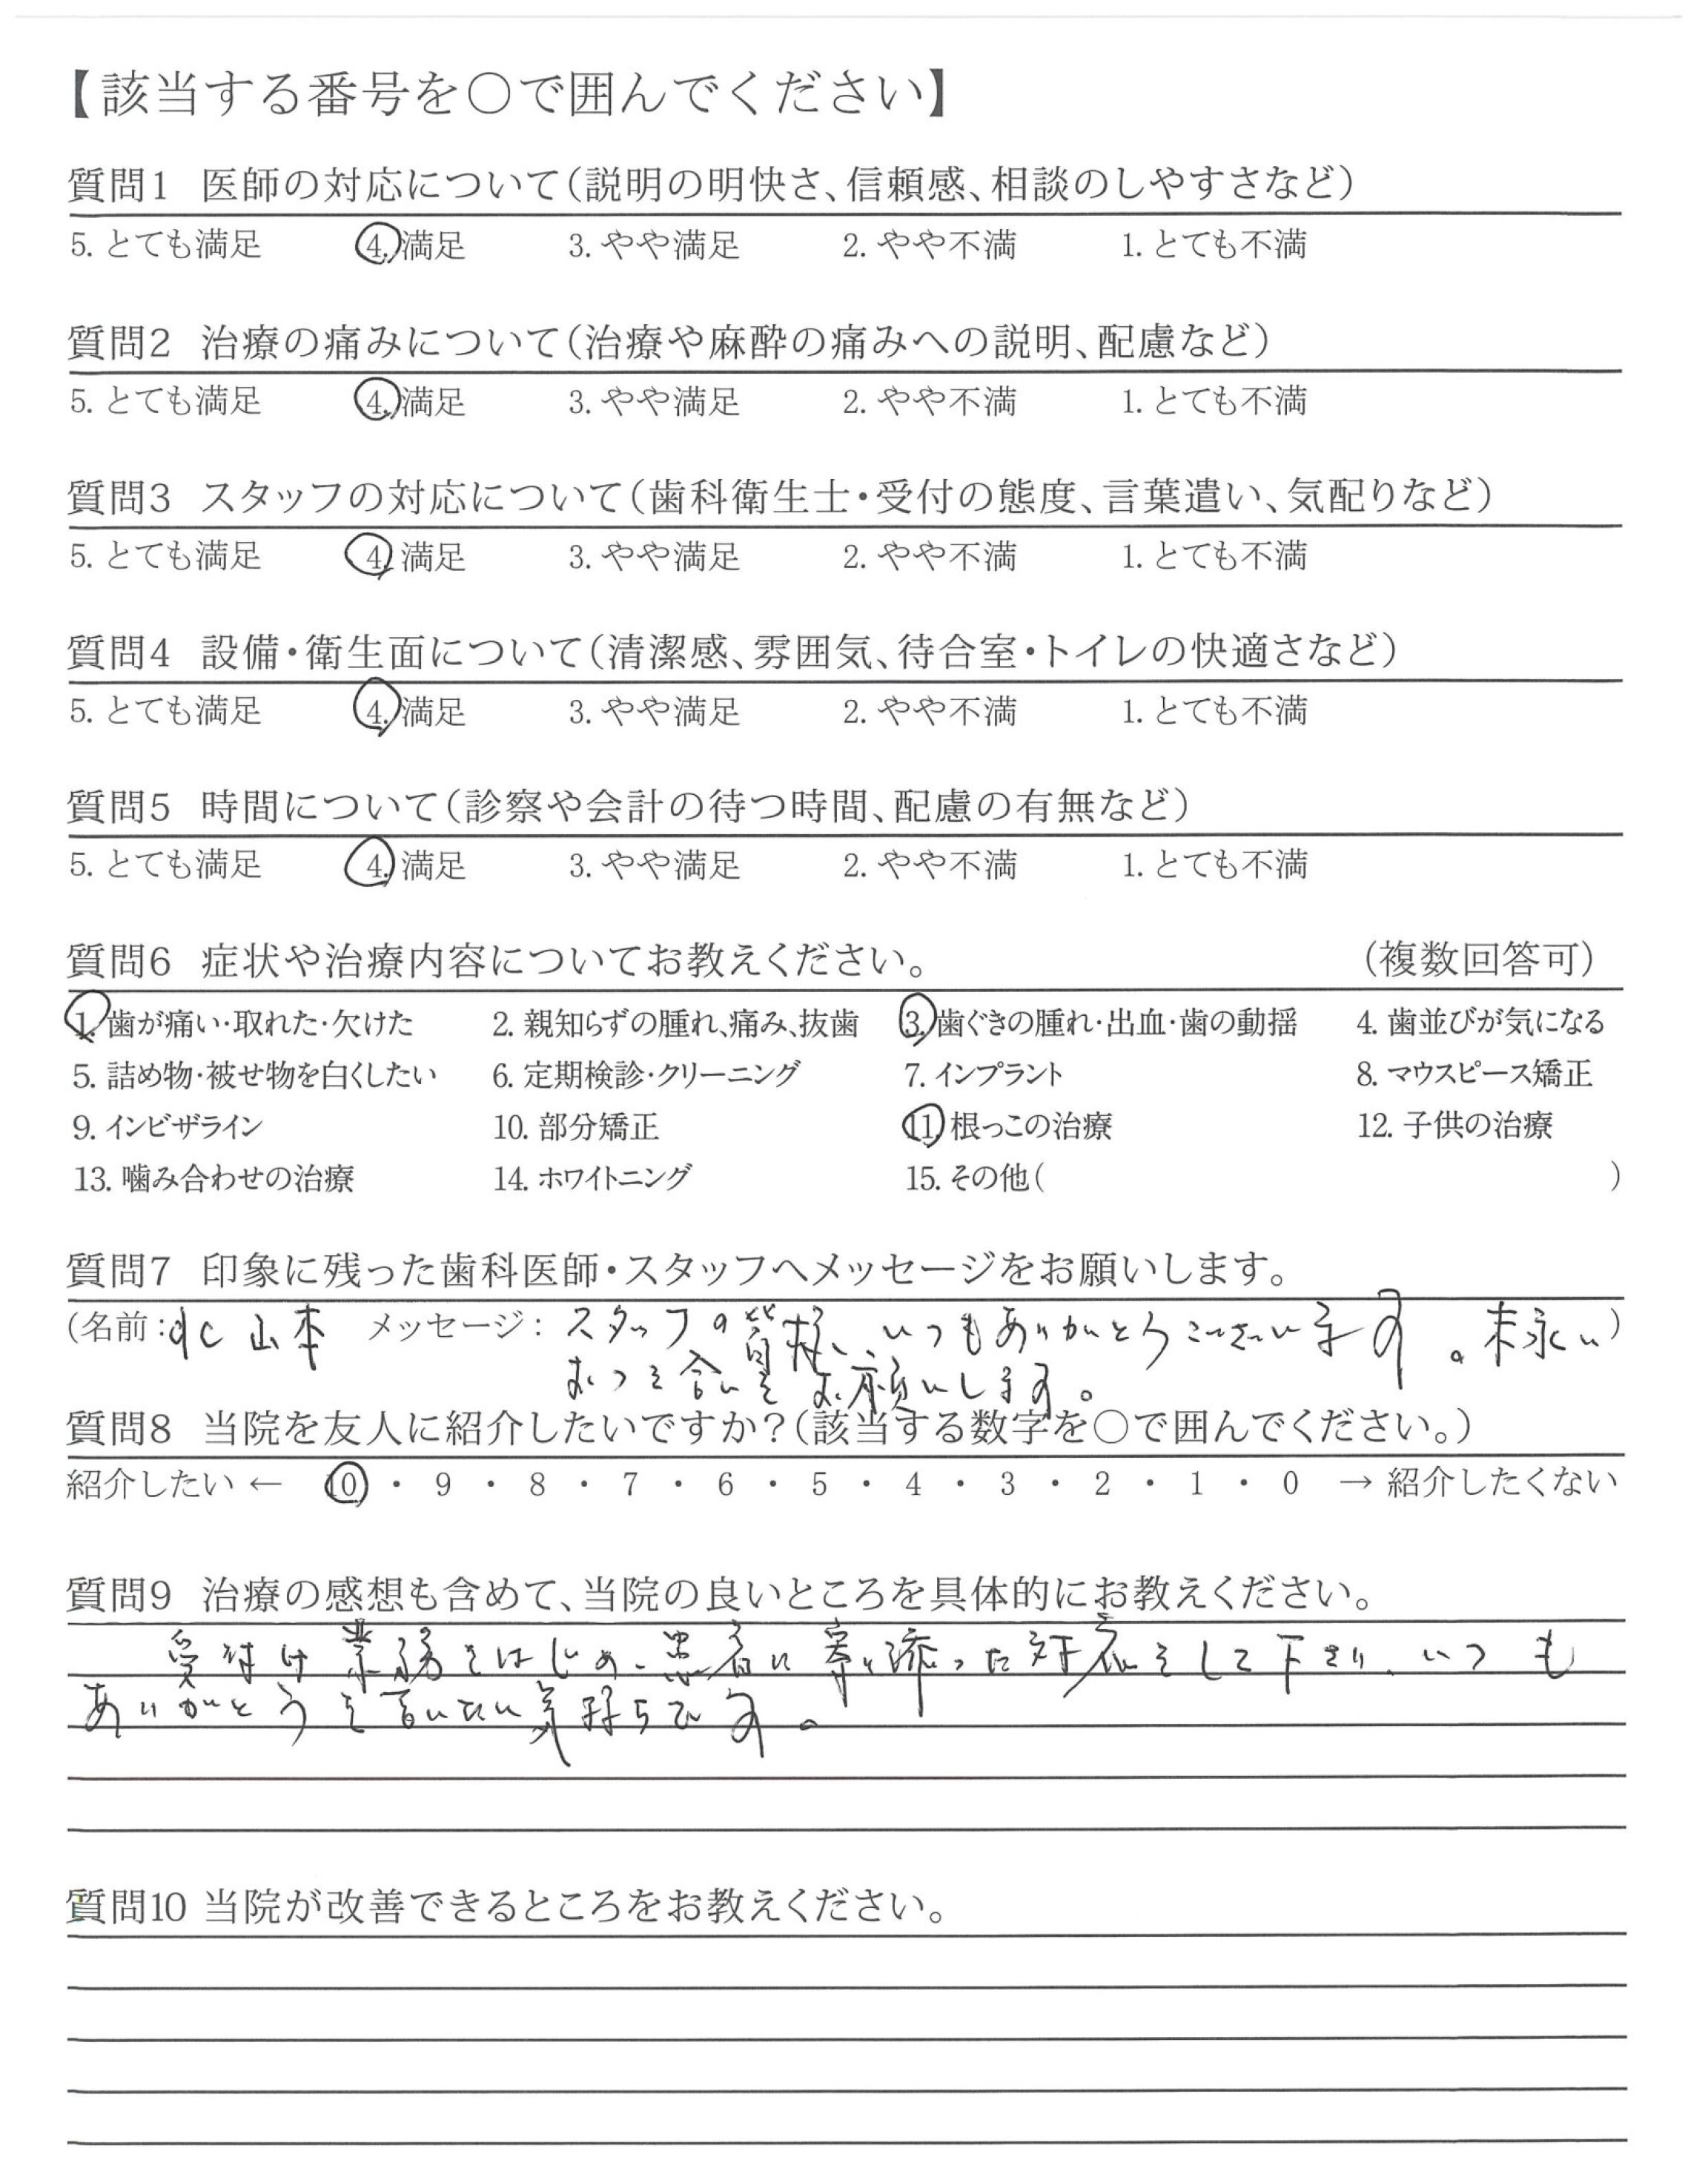 【該当する番号を○で囲んでください】
質問1 医師の対応について(説明の明快さ、信頼感、相談のしやすさなど)
5. とても満足 4. 満足 3. やや満足 2. やや不満 1. とても不満
質問2 治療の痛みについて(治療や麻酔の痛みへの説明、配慮など)
5. とても満足 4. 満足 3. やや満足 2. やや不満 1. とても不満
質問3 スタッフの対応について(歯科衛生士・受付の態度、言葉遣い、気配りなど)
5. とても満足 4. 満足 3. やや満足 2. やや不満 1. とても不満
質問4 設備・衛生面について(清潔感、雰囲気、待合室・トイレの快適さなど)
5. とても満足 4. 満足 3. やや満足 2. やや不満 1. とても不満
質問5 時間について(診察や会計の待つ時間、配慮の有無など)
5. とても満足 4. 満足 3. やや満足 2. やや不満 1. とても不満
質問6 症状や治療内容についてお教えください。 (複数回答可)
1. 歯が痛い・取れた・欠けた 2. 親知らずの腫れ、痛み、抜歯 3. 歯ぐきの腫れ・出血・歯の動揺 4. 歯並びが気になる
5. 詰め物・被せ物を白くしたい 6. 定期検診・クリーニング 7. インプラント 8. マウスピース矯正
9. インビザライン 10. 部分矯正 11. 根っこの治療 12. 子供の治療
13. 噛み合わせの治療 14. ホワイトニング 15. その他( )
質問7 印象に残った歯科医師・スタッフへメッセージをお願いします。
(名前: 山本 メッセージ: スタッフの皆様、いつもありがとうございます。末永い)
おつき合いを お願いします。
質問8 当院を友人に紹介したいですか?(該当する数字を○で囲んでください。)
紹介したい ← 10 ・ 9 ・ 8 ・ 7 ・ 6 ・ 5 ・ 4 ・ 3 ・ 2 ・ 1 ・ 0 → 紹介したくない
質問9 治療の感想も含めて、当院の良いところを具体的にお教えください。
受付け業務をはじめ、患者に寄り添った対応をして下さり、いつも
ありがとうを言いたい気持ちです。
質問10 当院が改善できるところをお教えください。